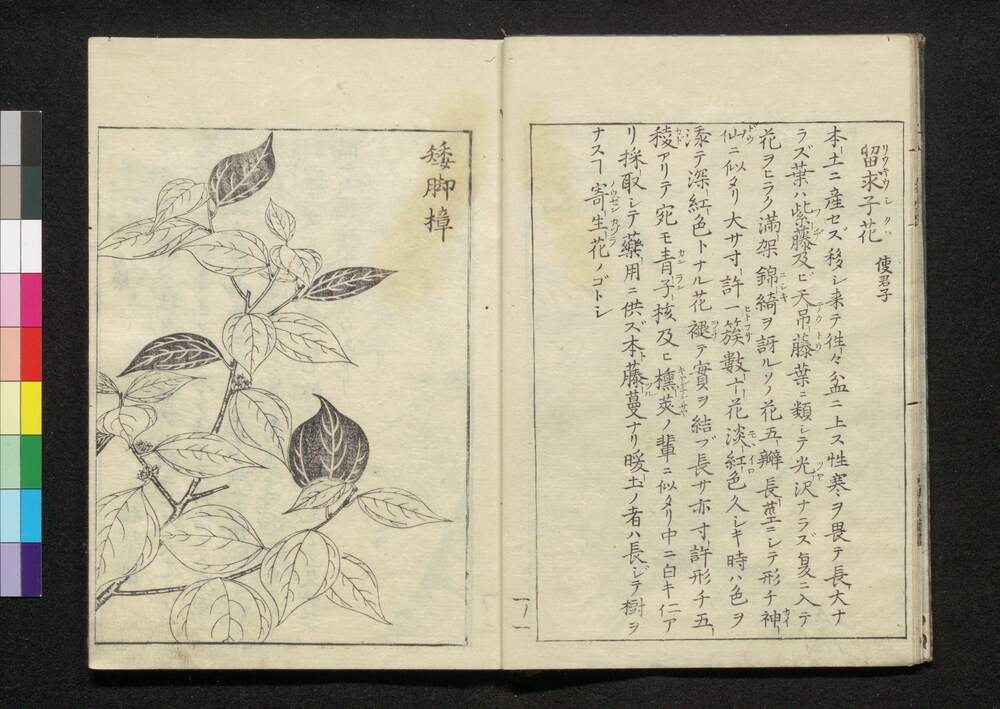 留求子花 使君子
本土ニ産セズ移シ来テ往々盆ニ上ス性寒ヲ畏テ長大ナ
ラズ葉ハ紫藤及ビ天吊藤葉ニ類シテ光沢ナラズ夏ニ入テ
花ヲヒラク満架錦綺ヲ訝ルソノ花五瓣長莖ニシテ形チ神
仙ニ似タリ大サ寸許一簇數十花淡紅色久シキ時ハ色ヲ
テ深紅色トナル花褪テ實ヲ結ブ長サ亦寸許形チ五
稜アリテ宛モ青子核及ヒ櫄莢ノ輩ニ似タリ中ニ白キ仁ア
リ採取シテ藥用ニ供ズ本藤蔓ナリ暖土ノ者ハ長ジテ樹ヲ
ナスヿ寄生花ノゴトシ
矮脚樟